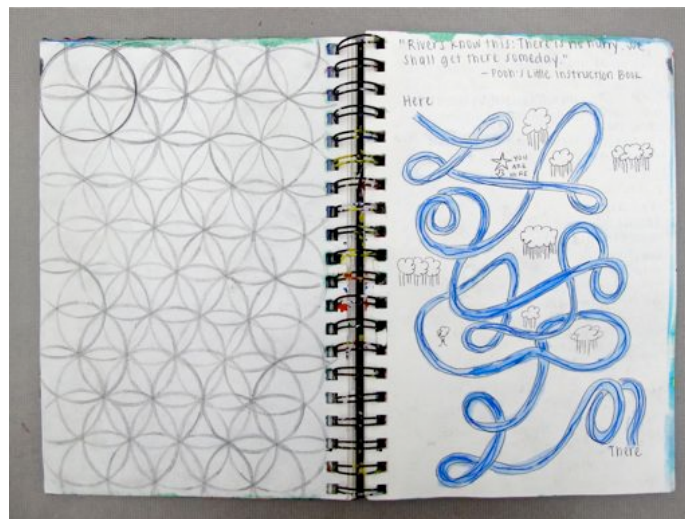 "Rivers know this: There is no hurry. We
shall get there someday."
- Pooh's Little Instruction Book
Here
YOU
ARE
HERE
There